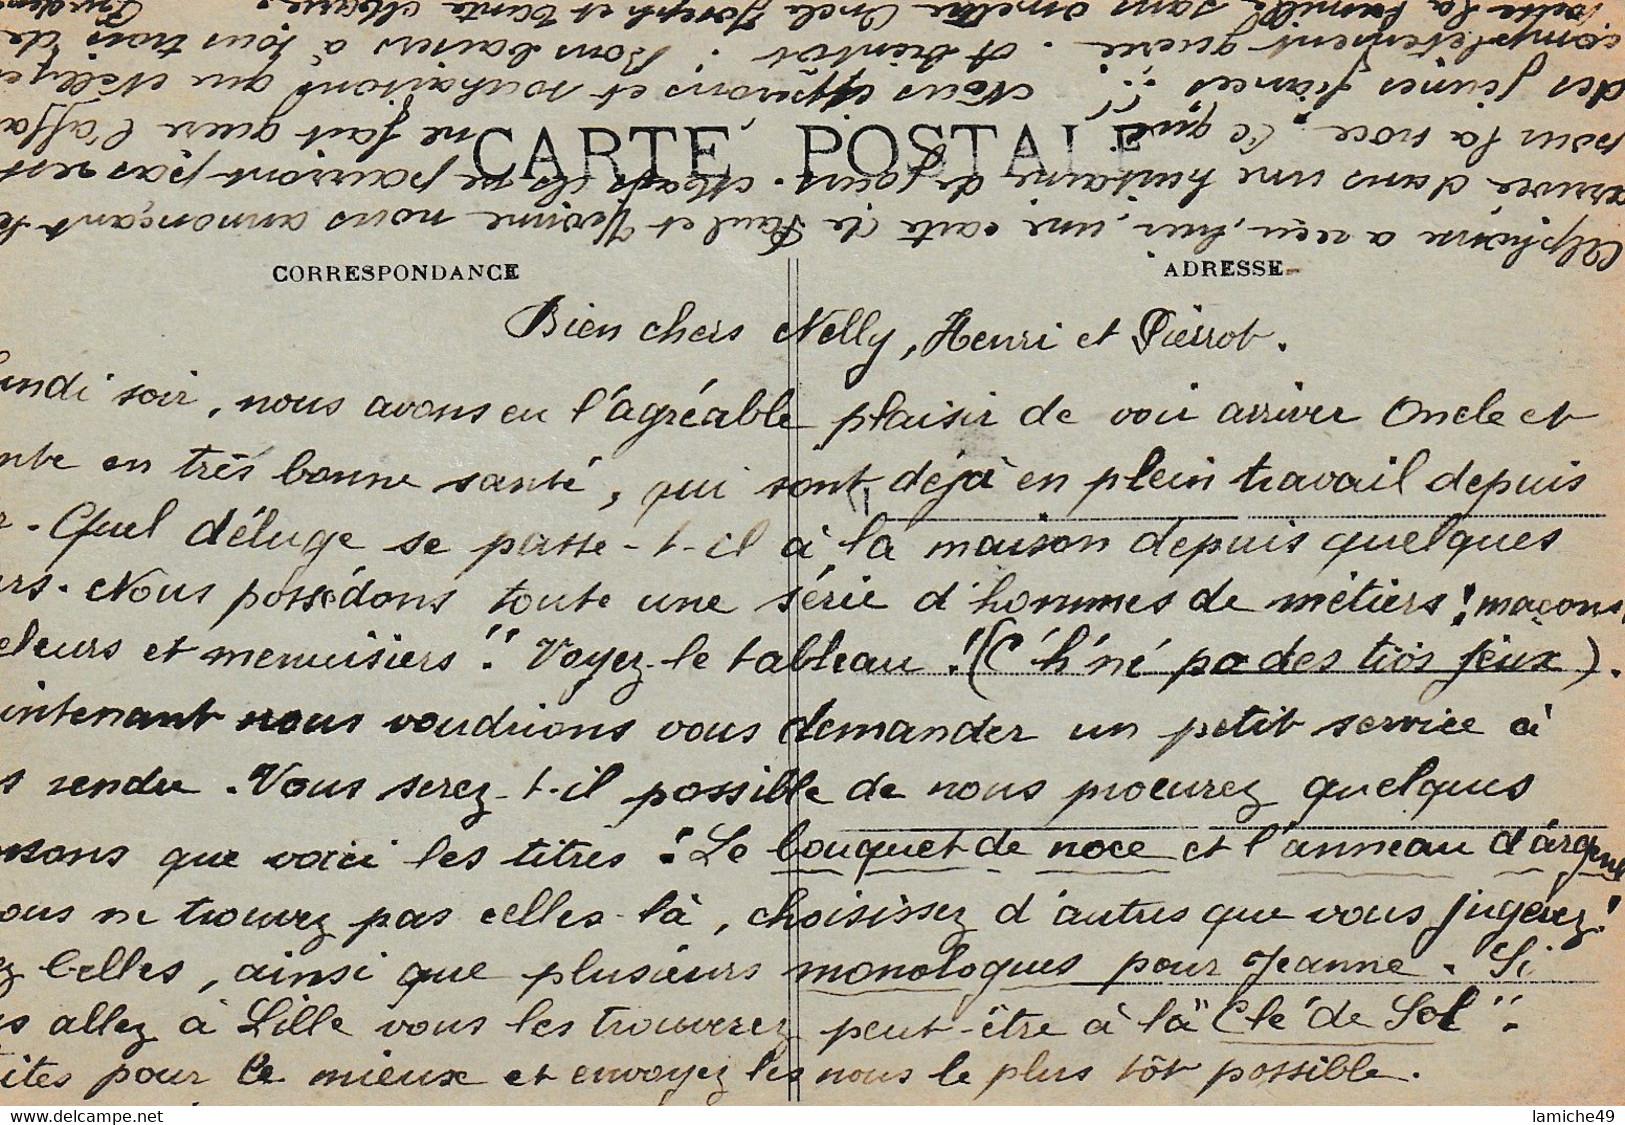 CARTE POSTALE
CORRESPONDANCE
ADRESSE
Bien chers Nelly, Henri et Pierrot.
undi soir, nous avons eu l'agréable plaisir de voir arriver Oncle et
nte en très bonne santé, qui sont déjà en plein travail depuis
r. Quel déluge se passe-t-il à la maison depuis quelques
urs. Nous possédons toute une série d'hommes de métiers! maçons
eleurs et menuisiers!! Voyez-le tableau! (C'h'né pa des tiòs jeux).
intenant nous voudrions vous demander un petit service à
s rendre. Vous serez-t-il possible de nous procurez quelques
nsons que voici les titres: Le bouquet de noce et l'anneau d'argent
ous ne trouvez pas celles-là, choisissez d'autres que vous jugerez!
z belles, ainsi que plusieurs monologues pour Jeanne. Si
s allez à Lille vous les trouverez peut-être à la "Clé de Sol".
ites pour le mieux et envoyez les nous le plus tôt possible.
Alphonse a reçu, hier, une carte de Paul et Yvonne nous annonçant le
arrivée dans une huitaine de jours. Mais ils ne pourront pas rest
pour la noce, ce qui ne fait guère l'affa
des jeunes fiancés!! Nous espérons et souhaitons que Nelly e
complètement guérie. A bientôt! Bons baisers à tous trois de
toute la famille sans omettre Oncle Joseph et tante Marie.
lamiche49